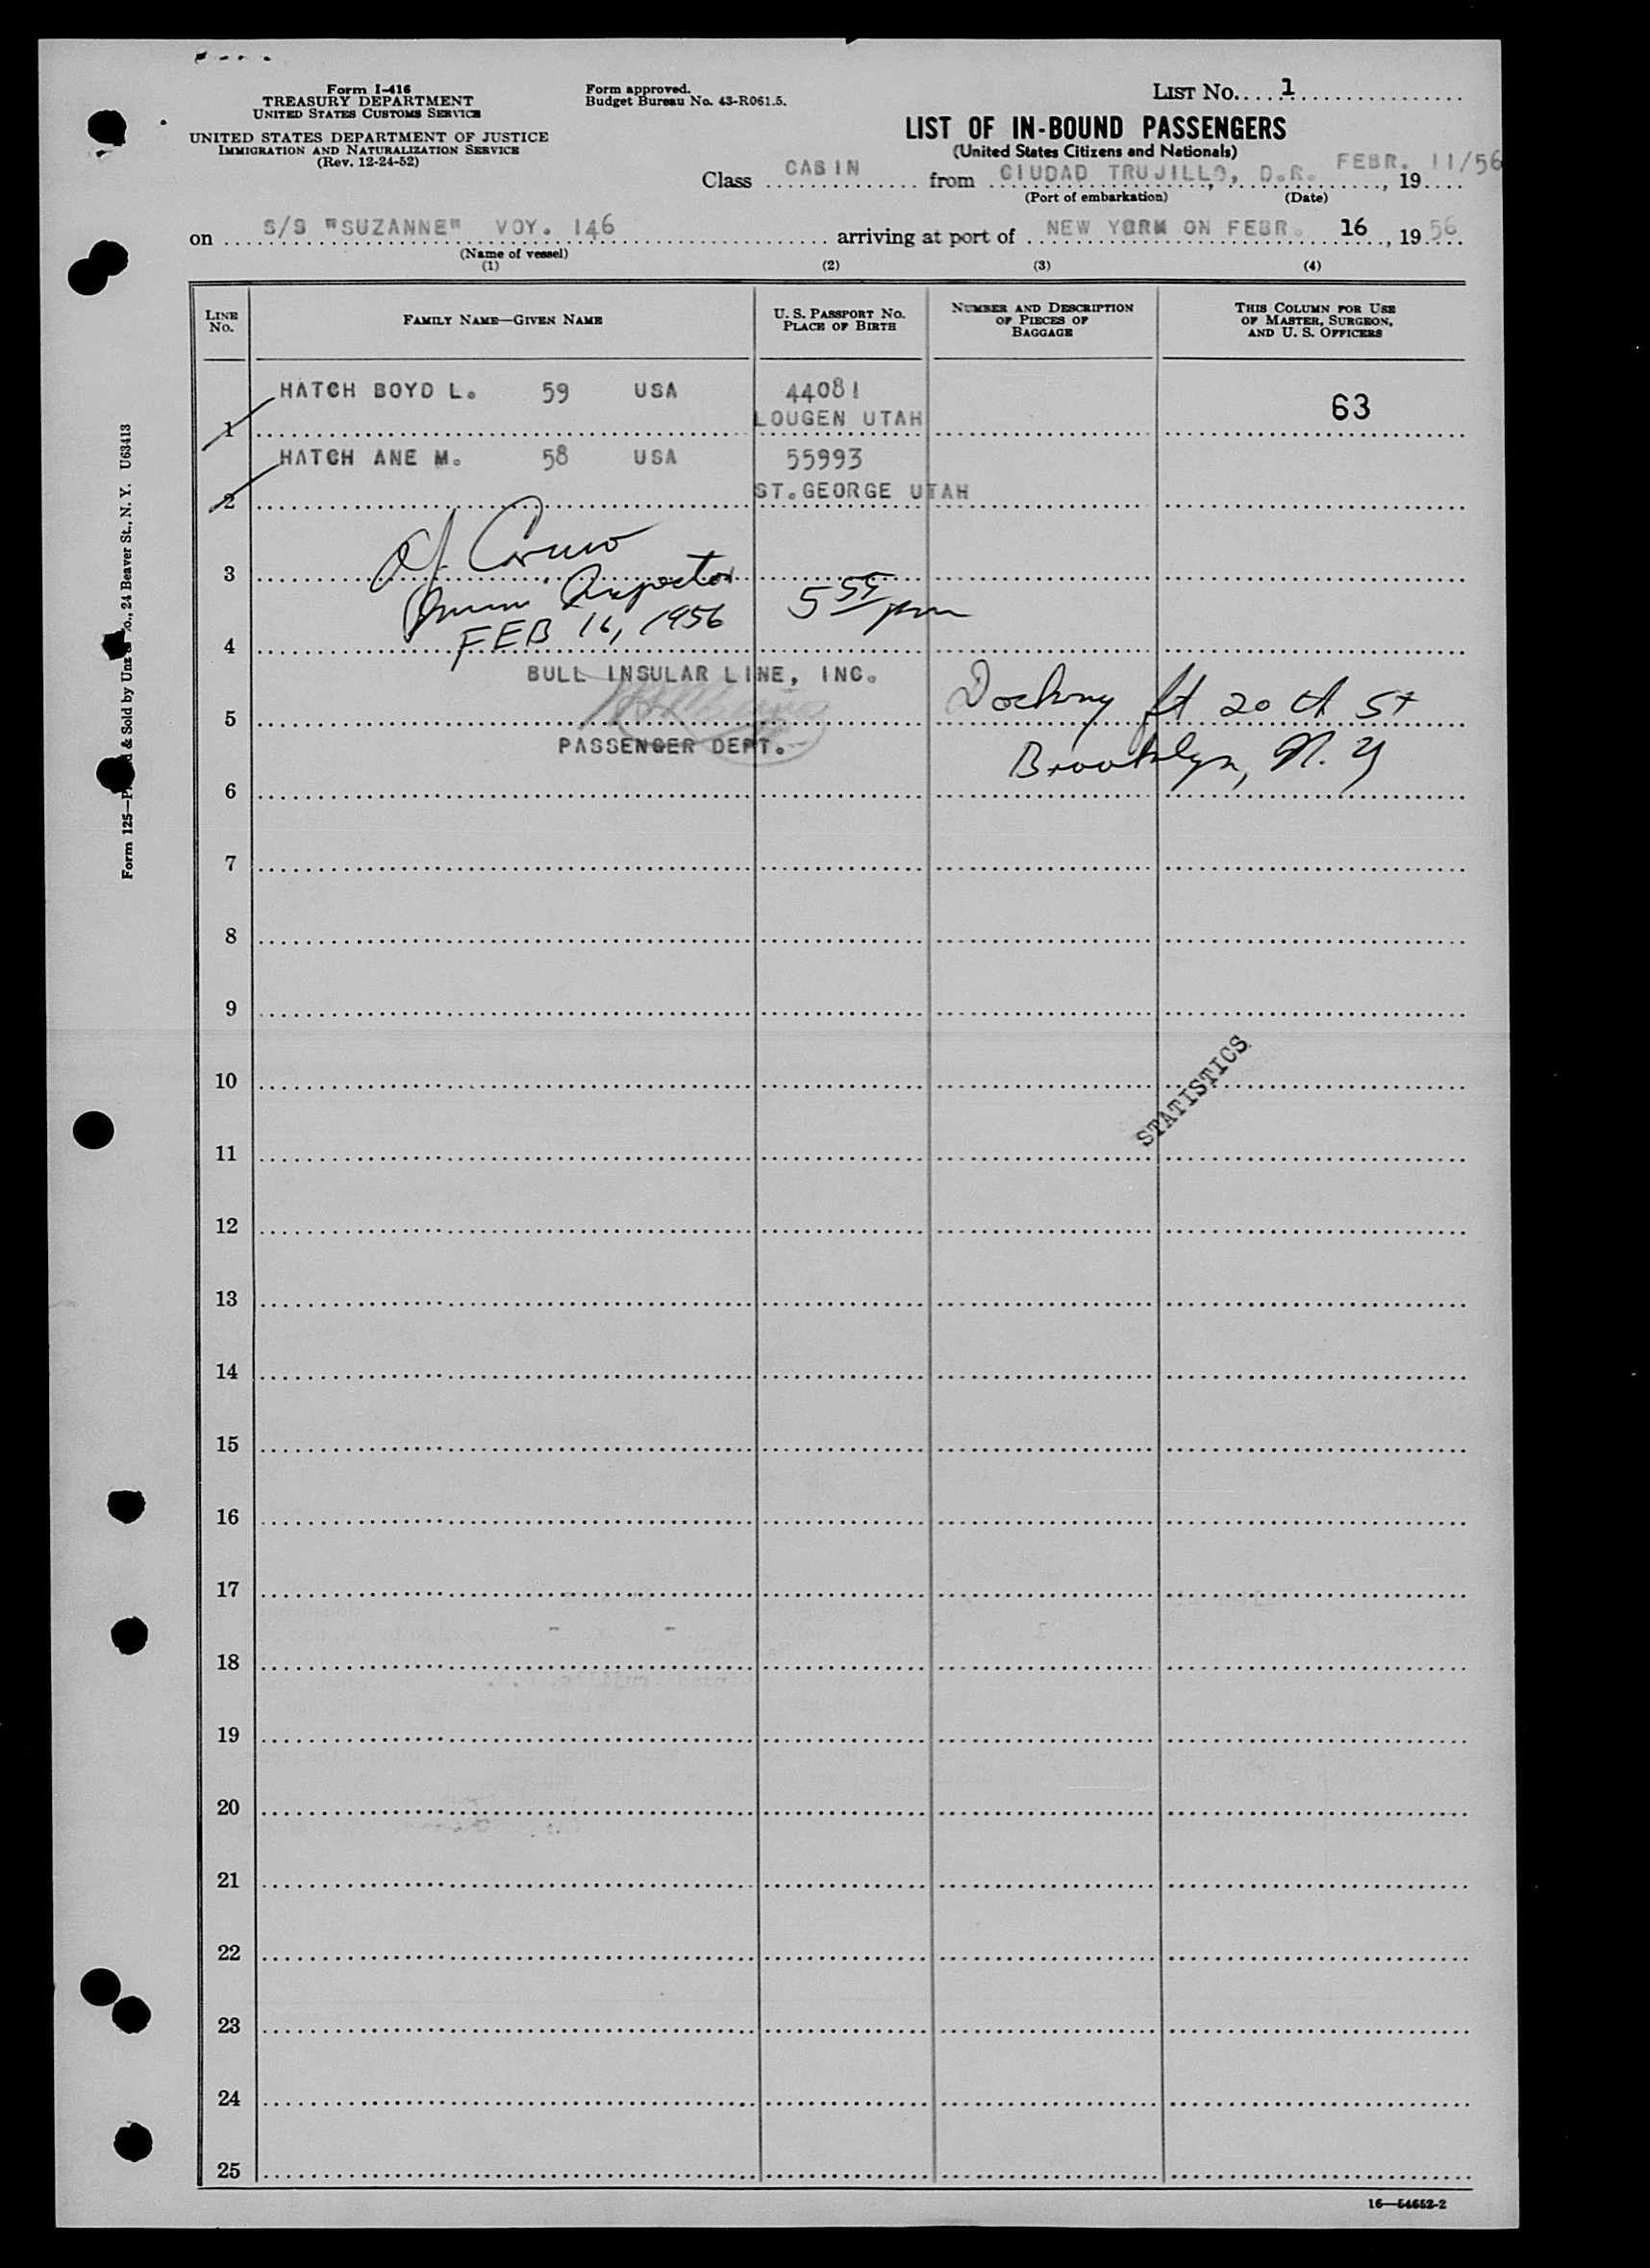 Form I-416
TREASURY DEPARTMENT
UNITED STATES CUSTOMS SERVICE
UNITED STATES DEPARTMENT OF JUSTICE
IMMIGRATION AND NATURALIZATION SERVICE
(Rev. 12-24-52)
Form approved.
Budget Bureau No. 43-R061.5.
LIST No. 1
LIST OF IN-BOUND PASSENGERS
(United States Citizens and Nationals)
Class CABIN from CIUDAD TRUJILLO, D.R. FEBR. 11/56, 19
(Port of embarkation) (Date)
on S/S "SUZANNE" VOY. 146 arriving at port of NEW YORK ON FEBR. 16, 1956
(Name of vessel)
(1) (2) (3) (4)
LINE No. FAMILY NAME—GIVEN NAME U. S. PASSPORT NO. PLACE OF BIRTH NUMBER AND DESCRIPTION OF PIECES OF BAGGAGE THIS COLUMN FOR USE OF MASTER, SURGEON, AND U. S. OFFICERS
HATCH BOYD L. 59 USA 44081 63
1 LOUGEN UTAH
HATCH ANE M. 58 USA 55993
2 ST.GEORGE UTAH
3 Inspector
FEB 16, 1956 5 55 pm
4
BULL INSULAR LINE, INC.
Docking ft 20th St
5
PASSENGER DEPT.
Brooklyn, N. Y
6
7
8
9
10
STATISTICS
11
12
13
14
15
16
17
18
19
20
21
22
23
24
25
16—54652-2
Form 125— & Sold by Co., 24 Beaver St., N. Y. U63413